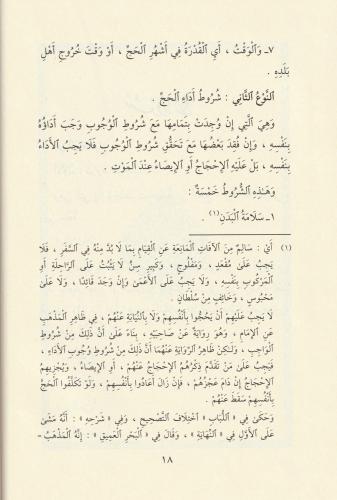 ٧ـ وَالْوَقْتُ ، أَيِ الْقُدْرَةُ فِي أَشْهُرِ الْحَجِّ ، أَوْ وَقْتَ خُرُوجِ أَهْلِ
بَلَدِهِ .
النَّوْعُ الثَّانِي : شُرُوطُ أَدَاءِ الْحَجِّ .
وَهِيَ الَّتِي إِنْ وُجِدَتْ بِتَمَامِهَا مَعَ شُرُوطِ الْوُجُوبِ وَجَبَ أَدَاؤُهُ
بِنَفْسِهِ ، وَإِنْ فُقِدَ بَعْضُهَا مَعَ تَحَقُّقِ شُرُوطِ الْوُجُوبِ فَلَا يَجِبُ الْأَدَاءُ
بِنَفْسِهِ ، بَلْ عَلَيْهِ الْإِحْجَاجُ أَوِ الْإِيصَاءُ عِنْدَ الْمَوْتِ .
وَهَـٰذِهِ الشُّرُوطُ خَمْسَةٌ :
١ـ سَلَامَةُ الْبَدَنِ(١) .
(١) أَيْ : سَالِمٍ مِنَ الْآفَاتِ الْمَانِعَةِ عَنِ الْقِيَامِ بِمَا لَا بُدَّ مِنْهُ فِي السَّفَرِ ، فَلَا
يَجِبُ عَلَىٰ مُقْعَدٍ ، وَمَفْلُوجٍ ، وَكَبِيرِ سِنٍّ لَا يَثْبُتُ عَلَى الرَّاحِلَةِ أَوِ
الْمَرْكُوبِ بِنَفْسِهِ ، وَلَا يَجِبُ عَلَى الْأَعْمَىٰ وَإِنْ وَجَدَ قَائِدًا ، وَلَا عَلَىٰ
مَحْبُوسٍ ، وَخَائِفٍ مِنْ سُلْطَانٍ .
لَا يَجِبُ عَلَيْهِمْ أَنْ يَحُجُّوا بِأَنْفُسِهِمْ وَلَا بِالنِّيَابَةِ عَنْهُمْ ، فِي ظَاهِرِ الْمَذْهَبِ
عَنِ الْإِمَامِ ، وَهُوَ رِوَايَةٌ عَنْ صَاحِبَيْهِ ، بِنَاءً عَلَىٰ أَنَّ ذَلِكَ مِنْ شُرُوطِ
الْوَاجِبِ ، وَلَـٰكِنْ ظَاهِرُ الرِّوَايَةِ عَنْهُمَا أَنَّ ذَلِكَ مِنْ شُرُوطِ وُجُوبِ الْأَدَاءِ ،
فَيَجِبُ عَلَىٰ مَنْ تَقَدَّمَ ذِكْرُهُمُ الْإِحْجَاجُ عَنْهُمْ ، أَوِ الْإِيصَاءُ ، وَيُجْزِيهِمُ
الْإِحْجَاجُ إِنْ دَامَ عَجْزُهُمْ ، فَإِنْ زَالَ أَعَادُوا بِأَنْفُسِهِمْ ، وَلَوْ تَكَلَّفُوا الْحَجَّ
بِأَنْفُسِهِمْ سَقَطَ عَنْهُمْ .
وَحَكَىٰ فِي « اللُّبَابِ » اخْتِلَافَ التَّصْحِيحِ ، وَفِي « شَرْحِهِ » : أَنَّهُ مَشَىٰ
عَلَى الْأَوَّلِ فِي « النِّهَايَةِ » ، وَقَالَ فِي « الْبَحْرِ الْعَمِيقِ » : إِنَّهُ الْمَذْهَبُ =
١٨